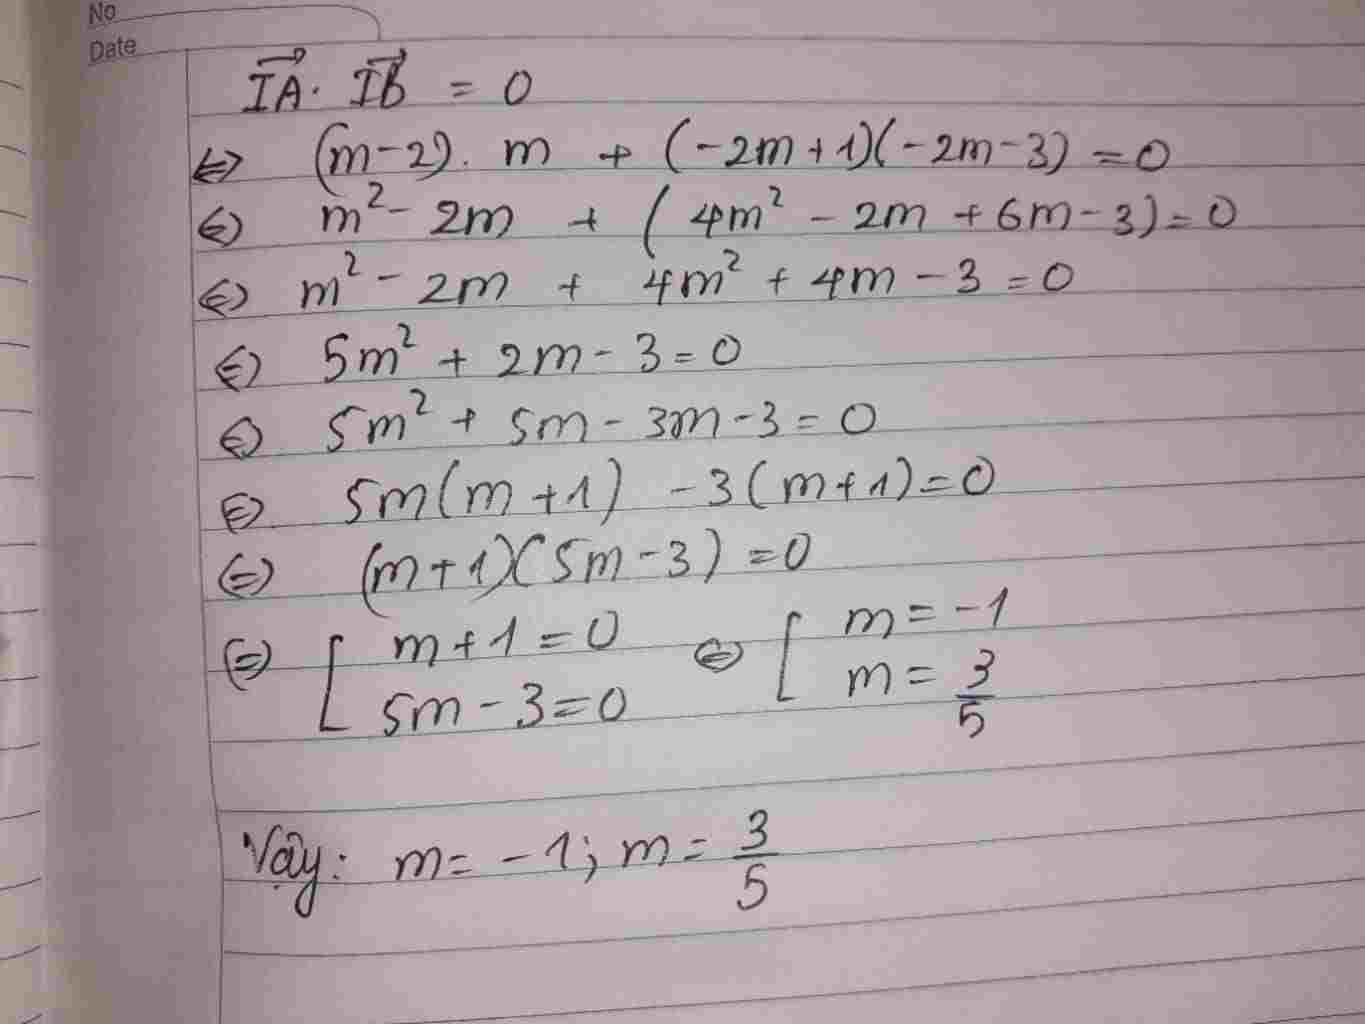 No
Date
$\overrightarrow{IA} \cdot \overrightarrow{IB} = 0$
⇔ (m-2). m + (-2m+1)(-2m-3) = 0
⇔ m² - 2m + (4m² - 2m + 6m - 3) = 0
⇔ m² - 2m + 4m² + 4m - 3 = 0
⇔ 5m² + 2m - 3 = 0
⇔ 5m² + 5m - 3m - 3 = 0
⇔ 5m(m+1) - 3(m+1) = 0
⇔ (m+1)(5m-3) = 0
⇔ [ m+1=0 ⇔ [ m = -1
5m-3=0 m = 3/5
Vậy: m = -1; m = 3/5